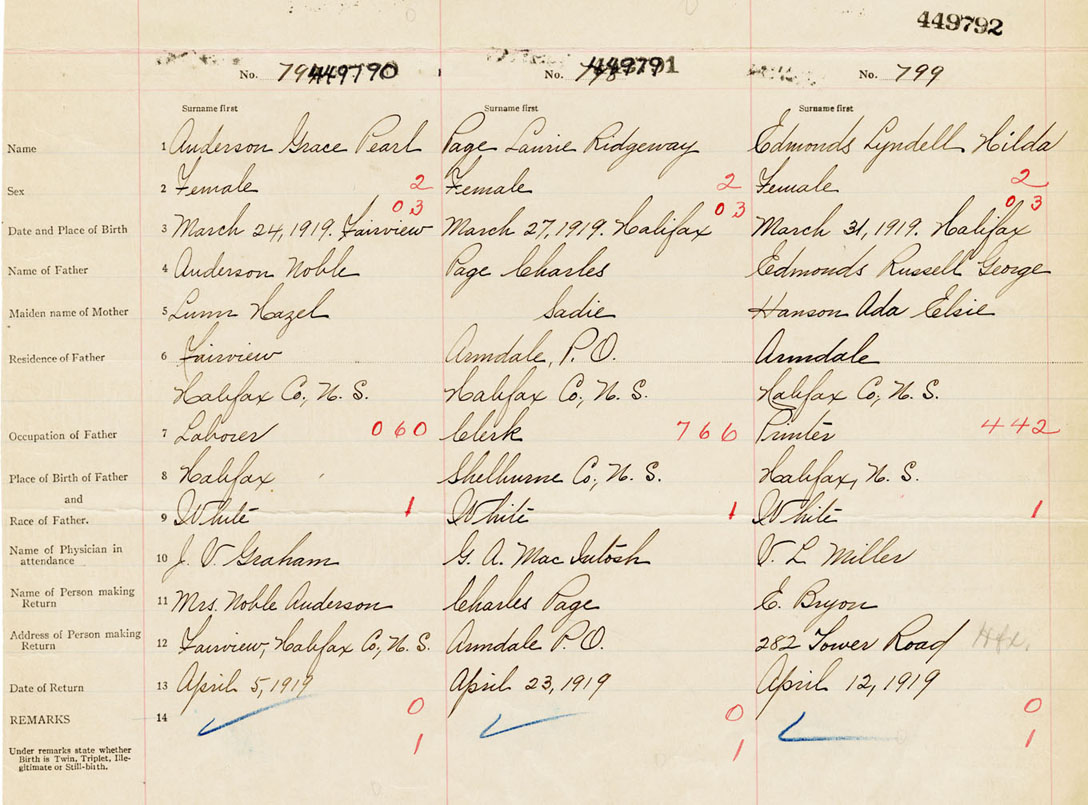 449792
No. 449790 No. 449791 No. 799
Surname first Surname first Surname first
Name 1 Anderson Grace Pearl Page Laurie Ridgeway Edmonds Lyndell Hilda
Sex 2 Female 2 Female 2 Female 2
03 03 03
Date and Place of Birth 3 March 24, 1919. Fairview March 27, 1919. Halifax March 31, 1919. Halifax
Name of Father 4 Anderson Noble Page Charles Edmonds Russell George
Maiden name of Mother 5 Lunn Hazel Sadie Hanson Ada Elsie
Residence of Father 6 Fairview Armdale, P.O. Armdale
Halifax Co., N. S. Halifax Co., N. S. Halifax Co., N. S.
Occupation of Father 7 Laborer 060 Clerk 766 Printer 442
Place of Birth of Father 8 Halifax Shelburne Co., N. S. Halifax, N. S.
and
Race of Father. 9 White 1 White 1 White 1
Name of Physician in
attendance 10 J. V. Graham G. A. MacIntosh V. L Miller
Name of Person making
Return 11 Mrs. Noble Anderson Charles Page E. Bryon
Address of Person making
Return 12 Fairview, Halifax Co., N. S. Armdale P.O. 282 Tower Road Hfx.
Date of Return 13 April 5, 1919 April 23, 1919 April 12, 1919
REMARKS 14 0 0 0
Under remarks state whether
Birth is Twin, Triplet, Ille-
gitimate or Still-birth. 1 1 1